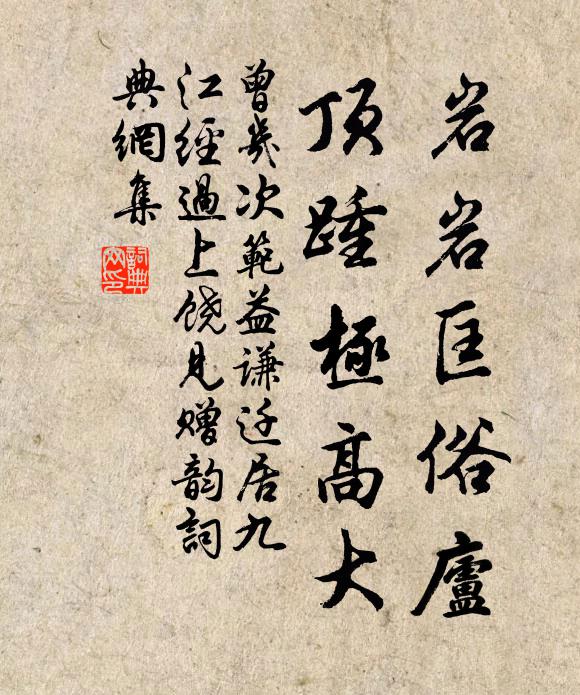 岩岩匡俗廬
頂踵極高大
曾幾次範益謙迁居九
江經過上饶見赠韵詞
典網集
詞典
网印